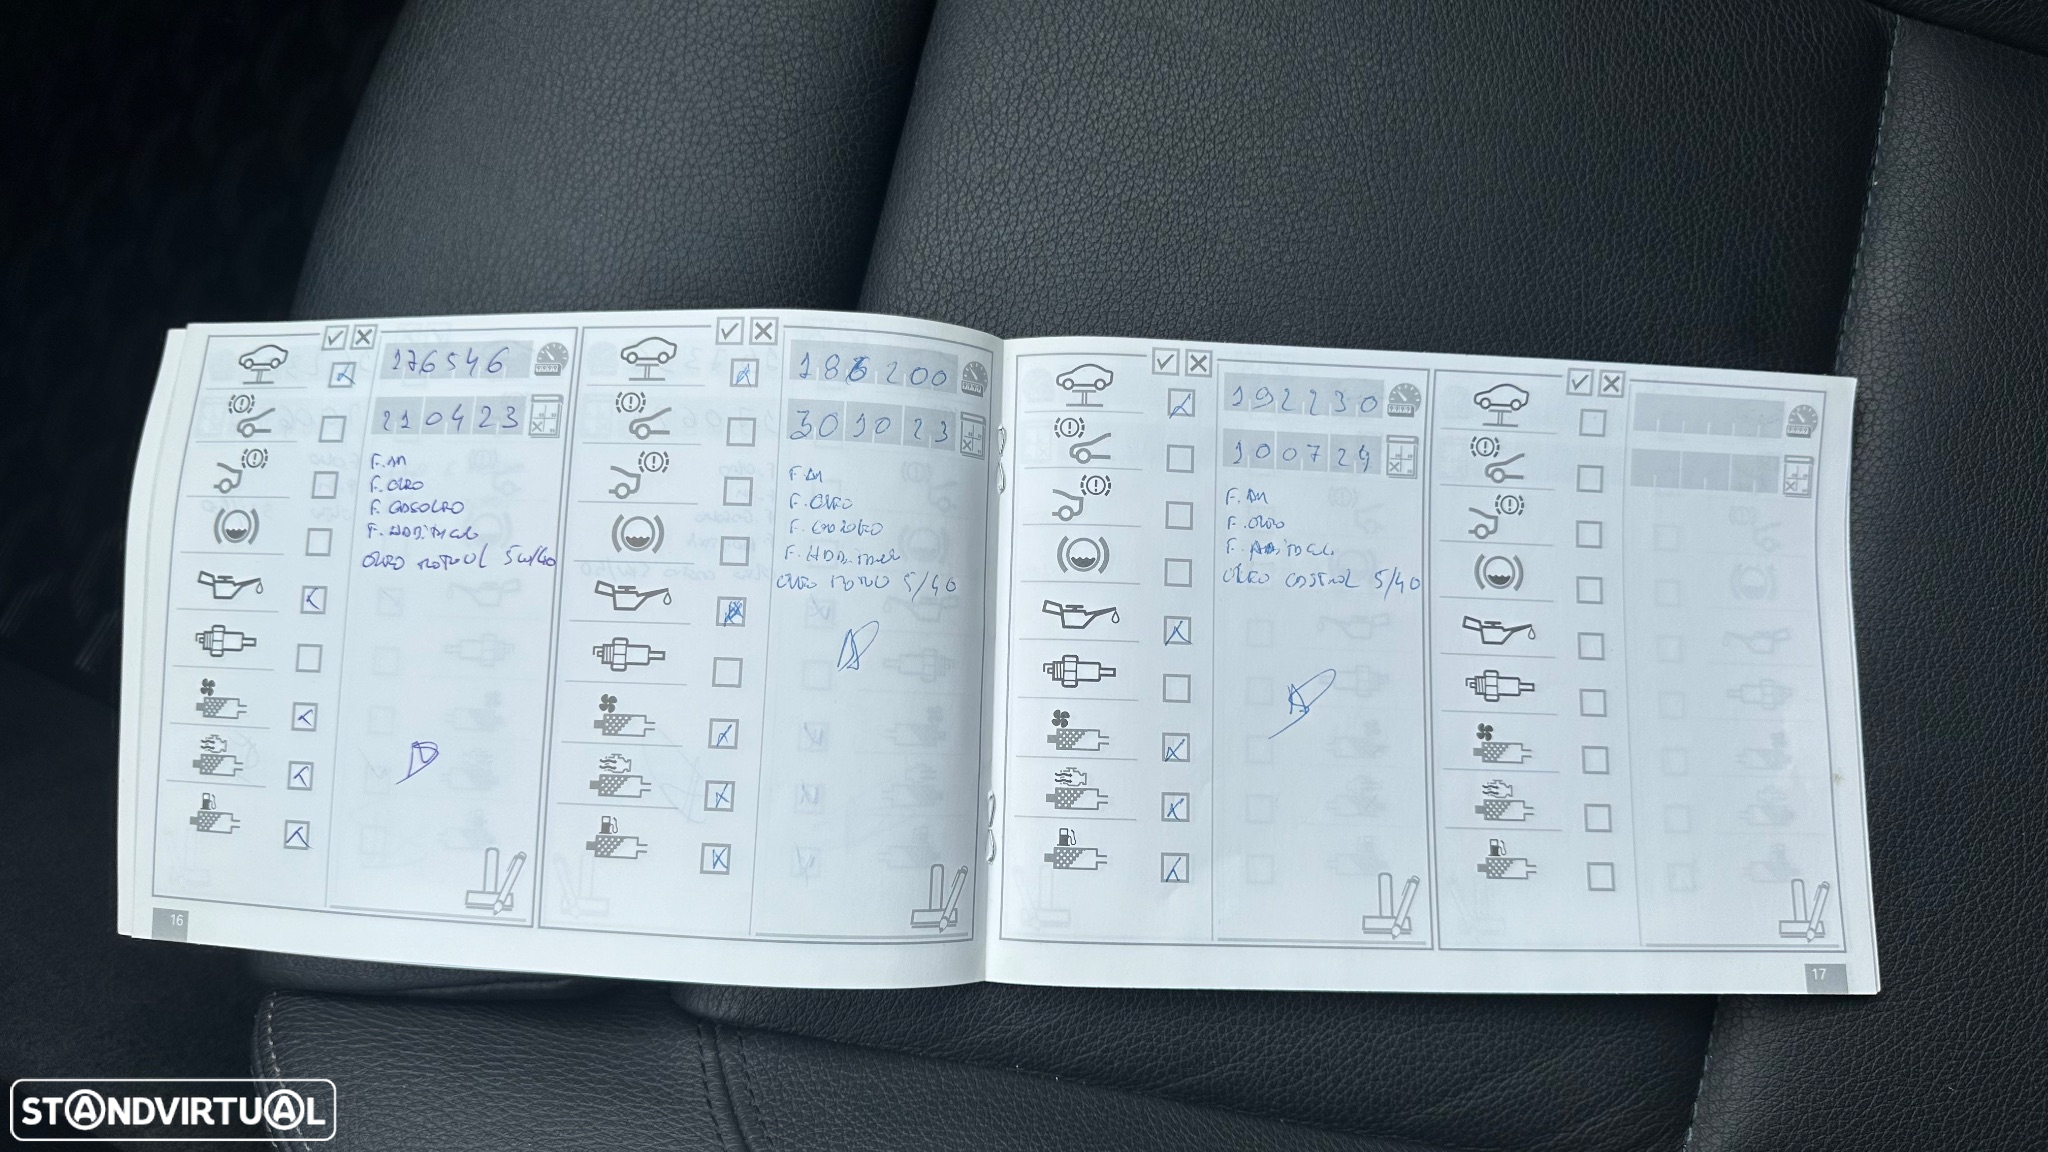 176546
210423
F. AR
F. OLEO
F. GASOLEO
F. HABITACL
OLEO MOTUL 5W/40
16
186200
301023
F. AR
F. OLEO
F. GASOLEO
F. HABITACL
OLEO MOTUL 5/40
192230
100724
F. AR
F. OLEO
F. HABITACL
OLEO CASTROL 5/40
17
STANDVIRTUAL